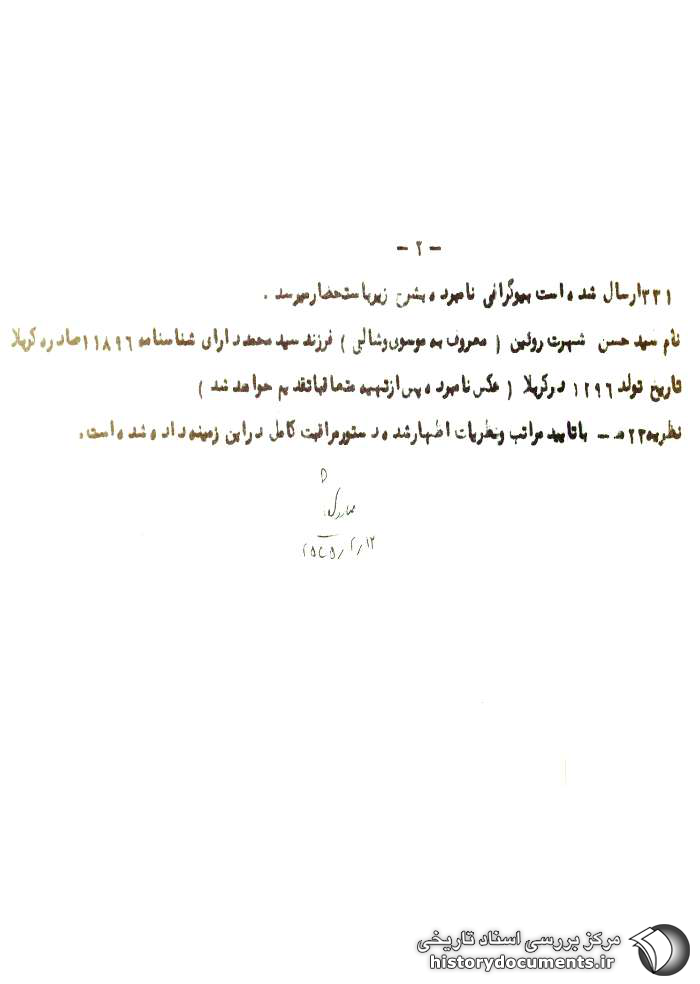 - ۲ -
۳۳۱ ارسال شده است بیوگرافی نامبرده بشرح زیر باستحضار میرسد .
نام سید حسن شهرت روئین ( معروف به موسوی وشالی ) فرزند سید محمد دارای شناسنامه ۱۱۸۹۶ صادره کربلا
تاریخ تولد ۱۲۹۶ در کربلا ( عکس نامبرده پس از تهیه متعاقبا تقدیم خواهد شد )
نظریه ۲۳ ه‍ - با تایید مراتب و نظریات اظهار شده دستور مراقبت کامل در این زمینه داده شده است .
۲۵۳۵/۲/۱۲
مرکز بررسی اسناد تاریخی
historydocuments.ir